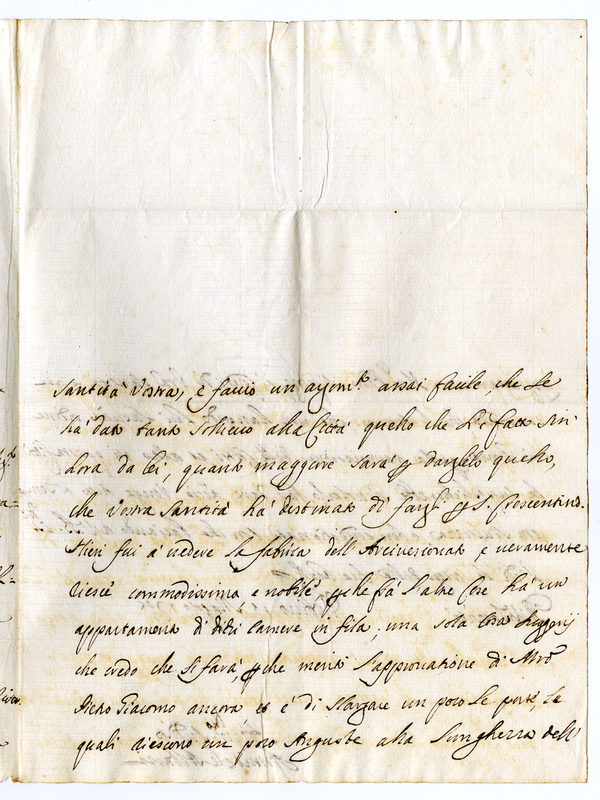 Santità Vostra, e faccio un argom.to assai facile, che se
hà dato tanto sollievo alla Città quello che s'è fatto sin'
hora da lei, quanto maggiore sarà p darglelo quello,
che Vostra Santità hà destinato di fargli p S. Crescentino.
Hieri fui à vedere la fabrica dell'Arcivescovato, e veramente
riesce commodissima, e nobile, p che frà l'altre Cose hà un
appartamento di dieci Camere in fila, una sola Cosa
che credo che si farà, p che meriti l'approvatione di Mro
Pietro Giacomo ancora, et è di slargare un poco le porte, le
quali riescono un poco Anguste alla lunghezza dell'